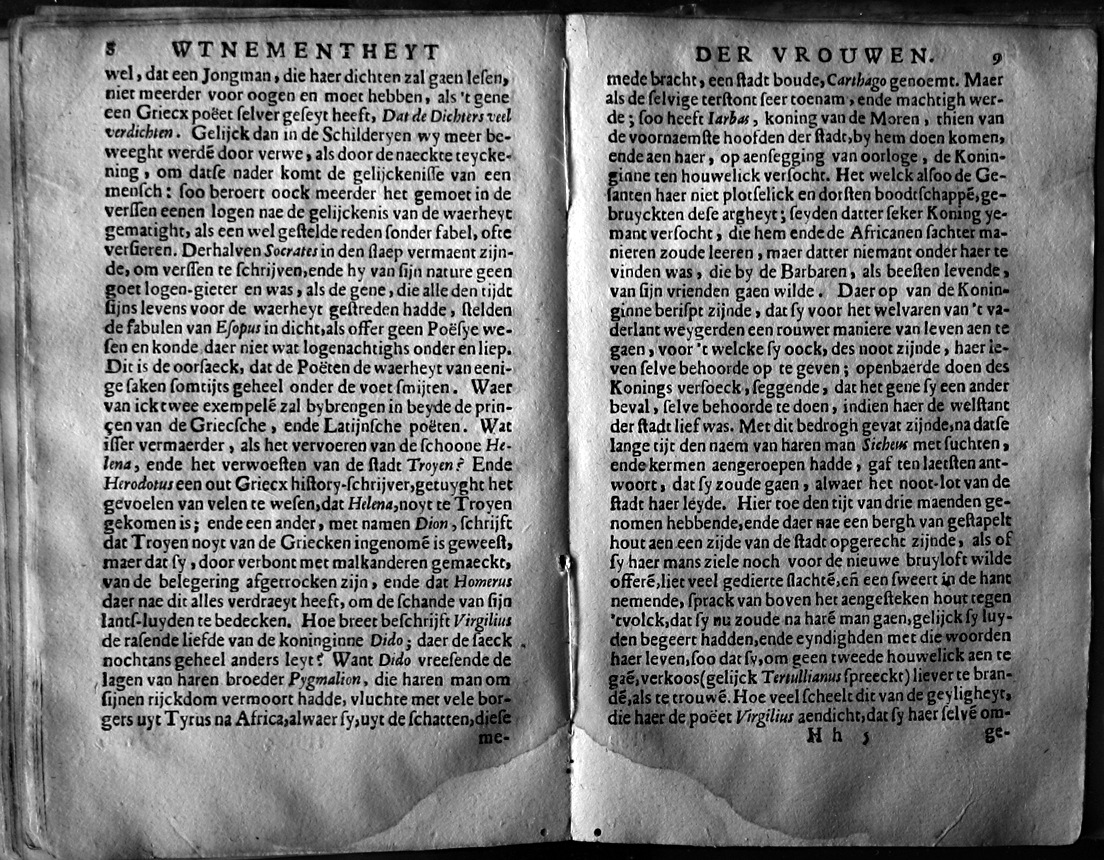 8 WTNEMENTHEYT
wel, dat een Jongman, die haer dichten zal gaen leſen,
niet meerder voor oogen en moet hebben, als 't gene
een Griecx poëet ſelver geſeyt heeft, Dat de Dichters veel
verdichten. Gelijck dan in de Schilderyen wy meer be-
weeght werdē door verwe, als door de naeckte teycke-
ning, om datſe nader komt de gelijckeniſſe van een
menſch: ſoo beroert oock meerder het gemoet in de
verſſen eenen logen nae de gelijckenis van de waerheyt
gematight, als een wel geſtelde reden ſonder fabel, ofte
verſieren. Derhalven Socrates in den ſlaep vermaent zijn-
de, om verſſen te ſchrijven, ende hy van ſijn nature geen
goet logen-gieter en was, als de gene, die alle den tijdt
ſijns levens voor de waerheyt geſtreden hadde, ſtelden
de fabulen van Eſopus in dicht, als offer geen Poëſye we-
ſen en konde daer niet wat logenachtighs onder en liep.
Dit is de oorſaeck, dat de Poëten de waerheyt van eeni-
ge ſaken ſomtijts geheel onder de voet ſmijten. Waer
van ick twee exempelē zal bybrengen in beyde de prin-
çen van de Griecſche, ende Latijnſche poëten. Wat
iſſer vermaerder, als het vervoeren van de ſchoone He-
lena, ende het verwoeſten van de ſtadt Troyen? Ende
Herodotus een out Griecx hiſtory-ſchrijver, getuyght het
gevoelen van velen te weſen, dat Helena, noyt te Troyen
gekomen is; ende een ander, met namen Dion, ſchrijft
dat Troyen noyt van de Griecken ingenomē is geweeſt,
maer dat ſy, door verbont met malkanderen gemaeckt,
van de belegering afgetrocken zijn, ende dat Homerus
daer nae dit alles verdraeyt heeft, om de ſchande van ſijn
lantſ-luyden te bedecken. Hoe breet beſchrijft Virgilius
de raſende liefde van de koninginne Dido; daer de ſaeck
nochtans geheel anders leyt? Want Dido vreeſende de
lagen van haren broeder Pygmalion, die haren man om
ſijnen rijckdom vermoort hadde, vluchte met vele bor-
gers uyt Tyrus na Africa, alwaer ſy, uyt de ſchatten, dieſe
me-
DER VROUWEN. 9
mede bracht, een ſtadt boude, Carthago genoemt. Maer
als de ſelvige terſtont ſeer toenam, ende machtigh wer-
de; ſoo heeft Iarbas, koning van de Moren, thien van
de voornaemſte hoofden der ſtadt, by hem doen komen,
ende aen haer, op aenſegging van oorloge, de Konin-
ginne ten houwelick verſocht. Het welck alſoo de Ge-
ſanten haer niet plotſelick en dorſten boodtſchappē, ge-
bruyckten deſe argheyt; ſeyden datter ſeker Koning ye-
mant verſocht, die hem ende de Africanen ſachter ma-
nieren zoude leeren, maer datter niemant onder haer te
vinden was, die by de Barbaren, als beeſten levende,
van ſijn vrienden gaen wilde. Daer op van de Konin-
ginne beriſpt zijnde, dat ſy voor het welvaren van 't va-
derlant weygerden een rouwer maniere van leven aen te
gaen, voor 't welcke ſy oock, des noot zijnde, haer le-
ven ſelve behoorde op te geven; openbaerde doen des
Konings verſoeck, ſeggende, dat het gene ſy een ander
beval, ſelve behoorde te doen, indien haer de welſtant
der ſtadt lief was. Met dit bedrogh gevat zijnde, na datſe
lange tijt den naem van haren man Sicheus met ſuchten,
ende kermen aengeroepen hadde, gaf ten laetſten ant-
woort, dat ſy zoude gaen, alwaer het noot-lot van de
ſtadt haer leyde. Hier toe den tijt van drie maenden ge-
nomen hebbende, ende daer nae een bergh van geſtapelt
hout aen een zijde van de ſtadt opgerecht zijnde, als of
ſy haer mans ziele noch voor de nieuwe bruyloft wilde
offerē, liet veel gedierte ſlachtē, eñ een ſweert in de hant
nemende, ſprack van boven het aengeſteken hout tegen
'tvolck, dat ſy nu zoude na harē man gaen, gelijck ſy luy-
den begeert hadden, ende eyndighden met die woorden
haer leven, ſoo dat ſy, om geen tweede houwelick aen te
gaē, verkoos (gelijck Tertullianus ſpreeckt) liever te bran-
dē, als te trouwē. Hoe veel ſcheelt dit van de geyligheyt,
die haer de poëet Virgilius aendicht, dat ſy haer ſelvē om-
H h 5 ge-